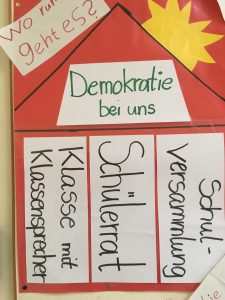 Wo
geht es?
Demokratie
bei uns
Klasse mit
Klassensprecher
Schülerrat
Schul-
versammlung